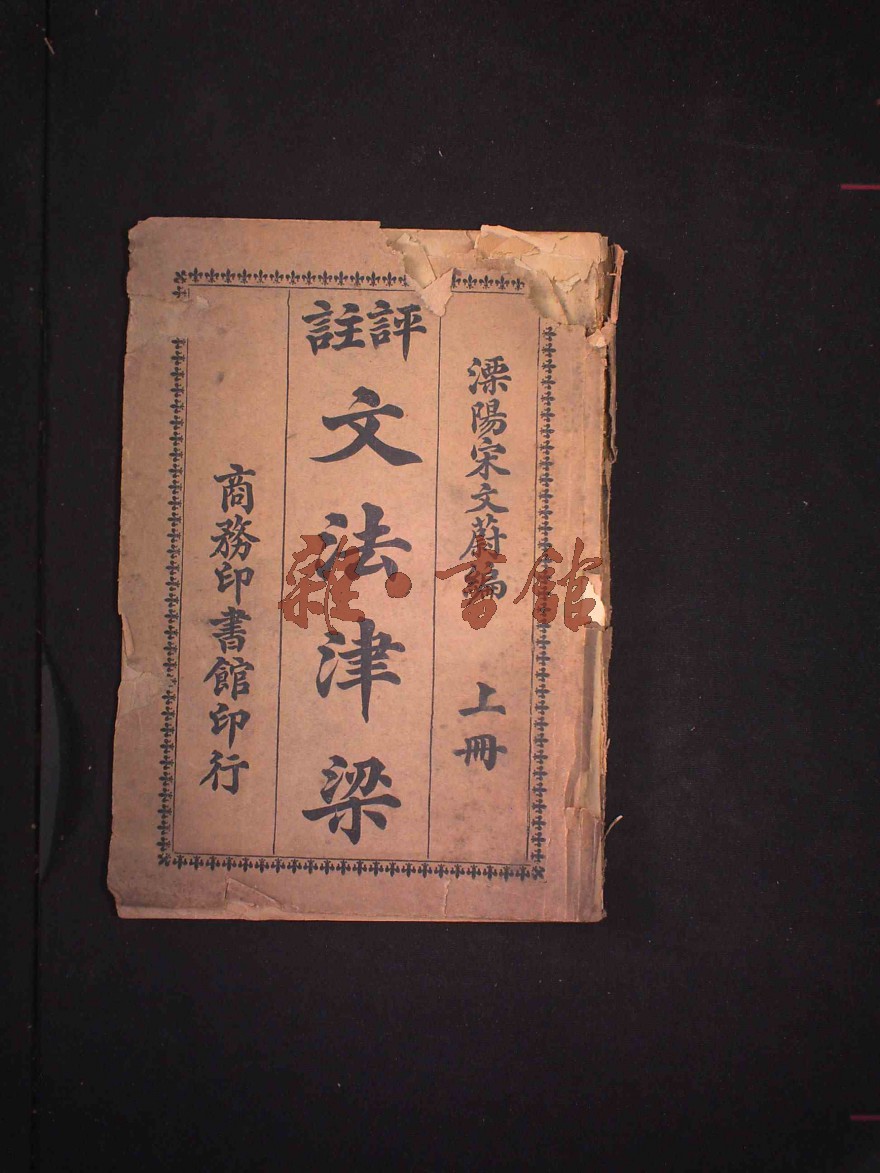 溧陽宋文蔚編 上冊
評註
文法津梁
商務印書館印行
雜·書館